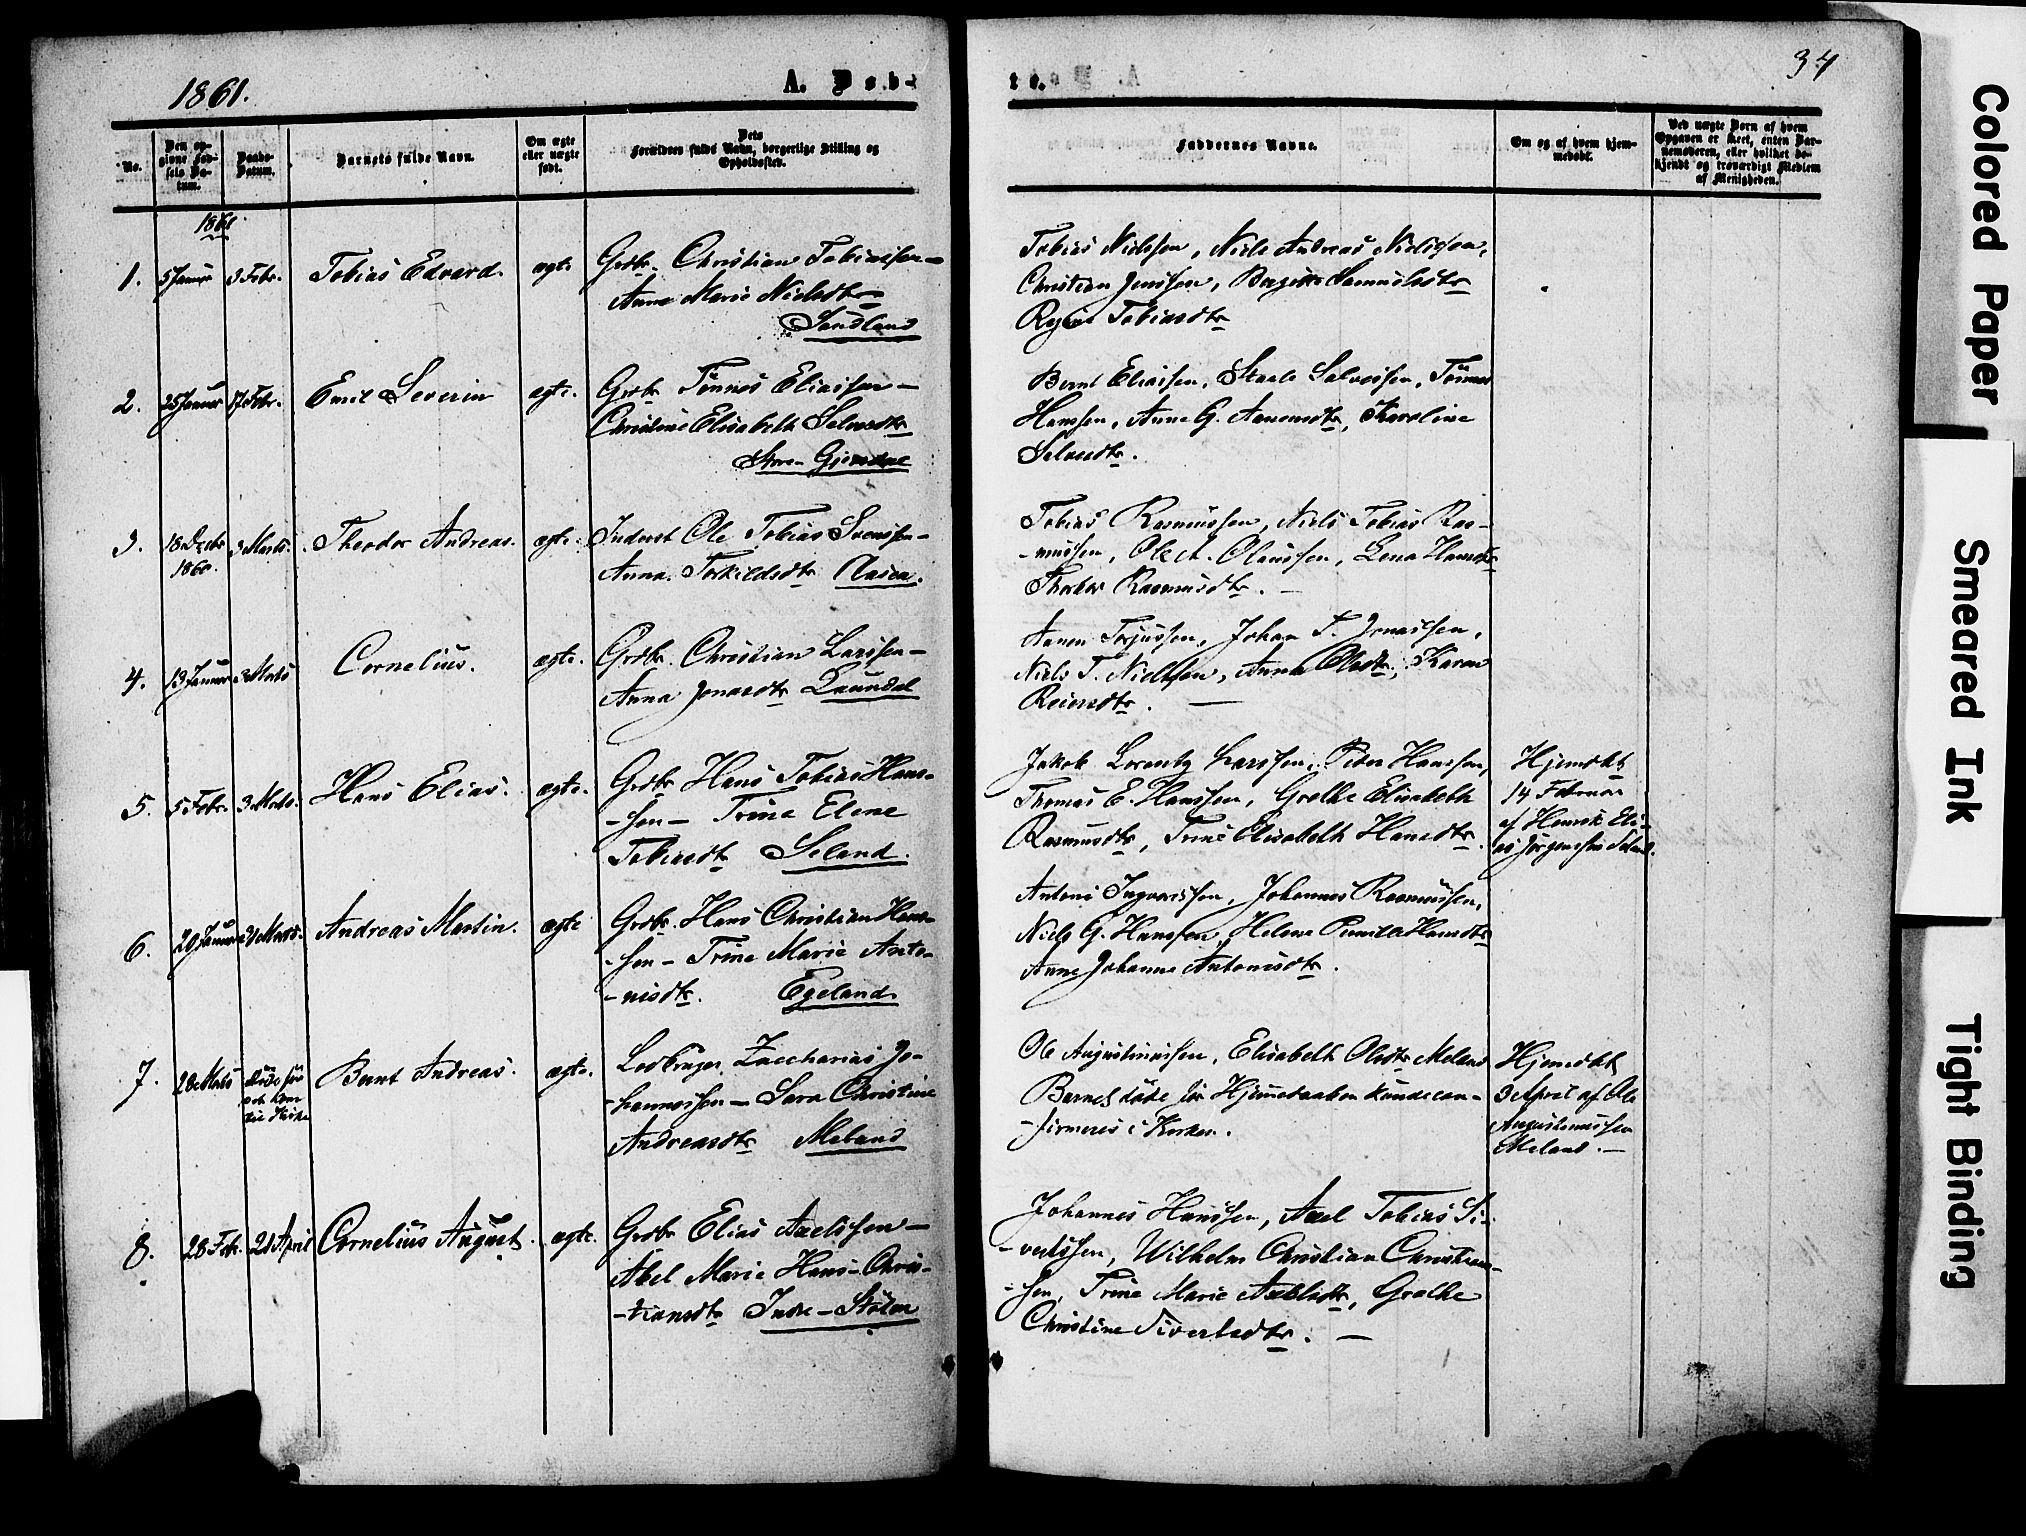 1861.
A. Døb-
te.
34
No.
Den op-
givne Fød-
sels Da-
tum.
Daabs-
Datum.
Barnets fulde Navn.
Om ægte
eller uægte
født.
Dets
Forældres fulde Navn, borgerlige Stilling og
Opholdssted.
Faddernes Navne.
Om og af hvem hjem-
medøbt.
Ved uægte Børn af hvem
Opgaven er skeet, enten Bar-
nemoderen, eller hvilket be-
kjendt og troværdigt Medlem
af Menigheden.
1861
1. 5 Januar 3 Febr. Tobias Edvard. ægte Grdbr. Christian Tobiassen –
Anne Marie Nielsdtr
Sandland
Tobias Nielssen, Niels Andreas Nielssen,
Christian Jenssen, Bergitte Samuelsdtr
Regine Tobiasdtr
2. 25 Januar 17 Febr. Emil Severin ægte. Grdbr Tönnes Eliassen –
Christine Elisabeth Salvesdtr
Store Gjerdene
Bernt Eliassen, Staale Salvessen, Tönnes
Hanssen, Anne G. Aanensdtr, Karoline
Salvesdtr.
3. 18 Decbr 3 Marts. Theodor Andreas. ægte. Inderst Ole Tobias Svenssen –
1860.
Anna Torkildsdtr Aasen.
Tobias Rasmussen, Niels Tobias Ras-
-mussen, Ole A. Olaussen, Lena Hansdtr
Thorbor Rasmusdtr. –
4. 13 Januar 3 Marts Cornelius. ægte. Grdbr. Christian Larssen –
Anna Jonasdtr Laundal
Aanen Torjussen, Johan T. Jonassen,
Niels T. Nielssen, Anna Olsdtr, Karen
Reiersdtr. –
5. 5 Febr. 3 Marts. Hans Elias. ægte. Grdbr Hans Tobias Hans-
-sen – Trine Elene
Tobiasdtr Seland.
Jakob Lorentz Larssen, Peder Hanssen,
Thomas E. Hanssen, Grethe Elisabeth
Rasmusdtr, Trine Elisabeth Hansdtr.
Hjemdbt
14 Februar
af Henrik Eli-
as Jörgensen Seland.
6. 20 Januar 3 Marts. Andreas Martin. ægte Grdbr. Hans Christian Hans-
-sen – Trine Marie Anto-
-nisdtr. Egeland
Antoni Ingvarssen, Johannes Rasmussen,
Niels G. Hanssen, Helene Pernille Hansdtr
Anne Johanne Antonisdtr.
7. 28 Marts Döde för
det kom
til Kirke
Bernt Andreas. ægte. Ledbruger Zaccharias Jo-
-hannessen – Sara Christine
Andreasdtr Meland
Ole Augustinussen, Elisabeth Olsdtr Meland
Barnet döde för Hjemmedaaben kunde con-
-firmeres i Kirken.
Hjemdbt
3 April af Ole
Augustinussen
Meland. –
8. 28 Febr. 21 April Cornelius August. ægte. Grdbr Elias Axelssen –
Abel Marie Hans-Chris-
-tiansdtr Indre-Stölen
Johannes Hanssen, Axel Tobias Si-
-vertssen, Wilhelm Christian Christians-
-sen, Trine Marie Axelsdtr, Grethe
Christine Sivertsdtr. –
Colored Paper
Smeared Ink
Tight Binding